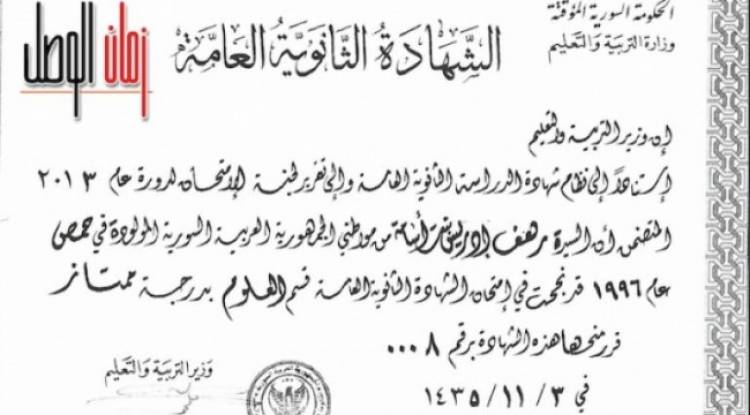 الحكومة السورية المؤقتة
وزارة التربية والتعليم
زمان الوصل
الشهادة الثانوية العامة
إن وزير التربية والتعليم
إستناداً إلى نظام شهادة الدراسة الثانوية العامة وإلى تقرير لجنة الإمتحان لدورة عام ٢٠١٣
المتضمن أن السيدة رهف إدريس من مواطني الجمهورية العربية السورية المولودة في حمص
عام ١٩٩٦ قد نجحت في إمتحان الشهادة الثانوية العامة قسم العلوم بدرجة ممتاز
قرر منحها هذه الشهادة برقم ٠٠٠٨
في ١٤٣٥/١١/٣
وزير التربية والتعليم